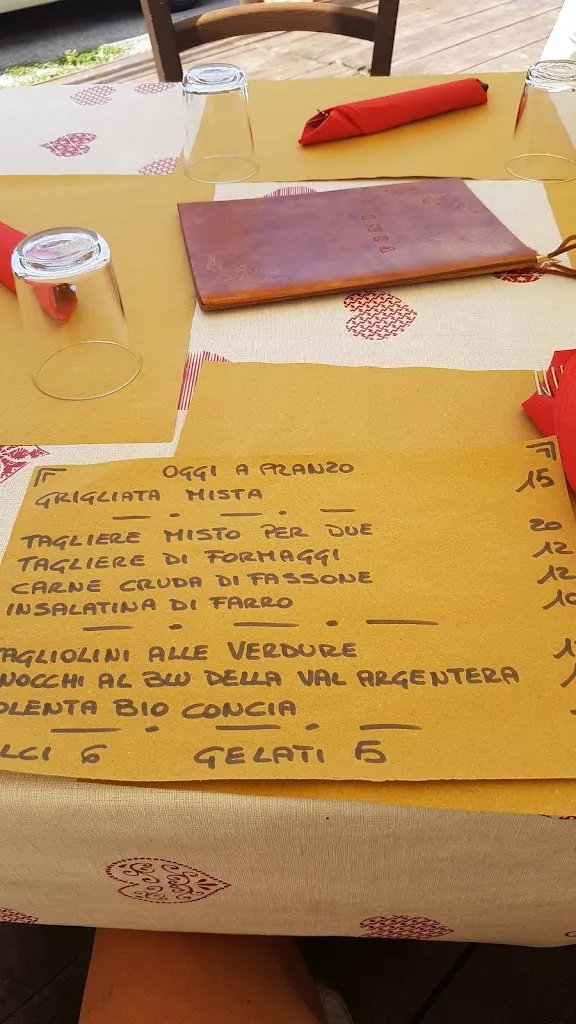 OGGI A PRANZO
GRIGLIATA MISTA 15
TAGLIERE MISTO PER DUE 20
TAGLIERE DI FORMAGGI 12
CARNE CRUDA DI FASSONE 12
INSALATINA DI FARRO 10
TAGLIOLINI ALLE VERDURE
NOCCHI AL BLU DELLA VAL ARGENTERA
OLENTA BIO CONCIA
LCI 6 GELATI 5